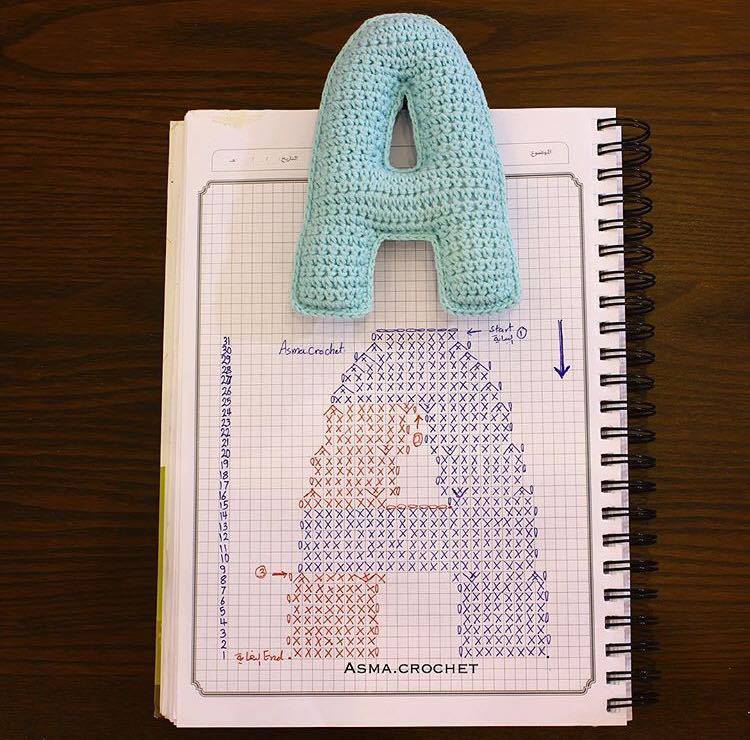 التاريخ / / هـ
الموضوع
start ①
Asma.crochet
31
30
29
28
27
26
25
24
23
22
21
20
19
18
17
16
15
14
13
12
11
10
9
8
7
6
5
4
3
2
1
②
③
End
ASMA.CROCHET